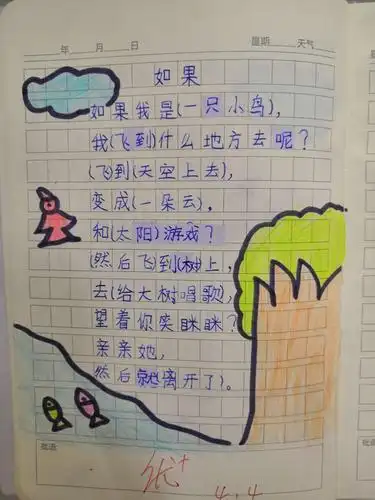 年 月 日 星期 天气
如果
如果我是(一只小鸟),
我(飞到)什么地方去呢?
(飞到(天空上去),
变成(一朵云).
和(太阳)游戏?
(然后飞)到(树)上,
去(给大树唱歌,
望着你笑眯眯?
亲亲她,
然后就离开了)。
批语
优+
4.4